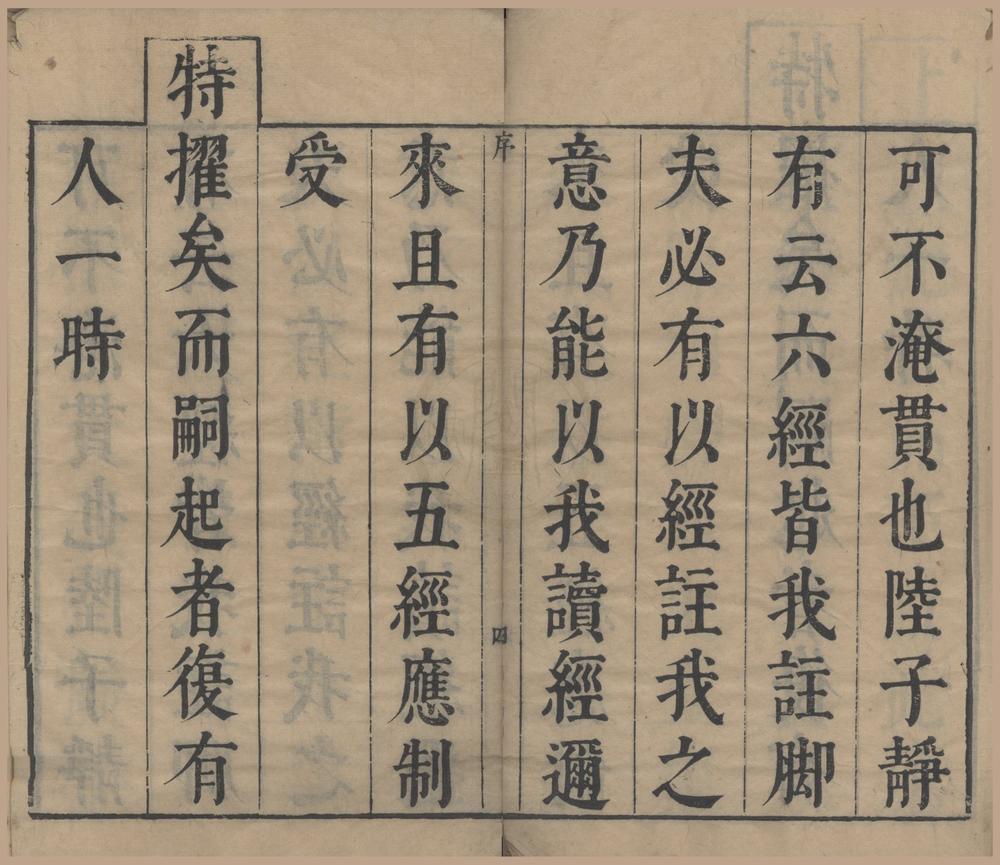 可不淹貫也陸子靜
有云六經皆我註脚
夫必有以經註我之
意乃能以我讀經邇
序 四
來且有以五經應制
受
特擢矣而嗣起者復有
人一時